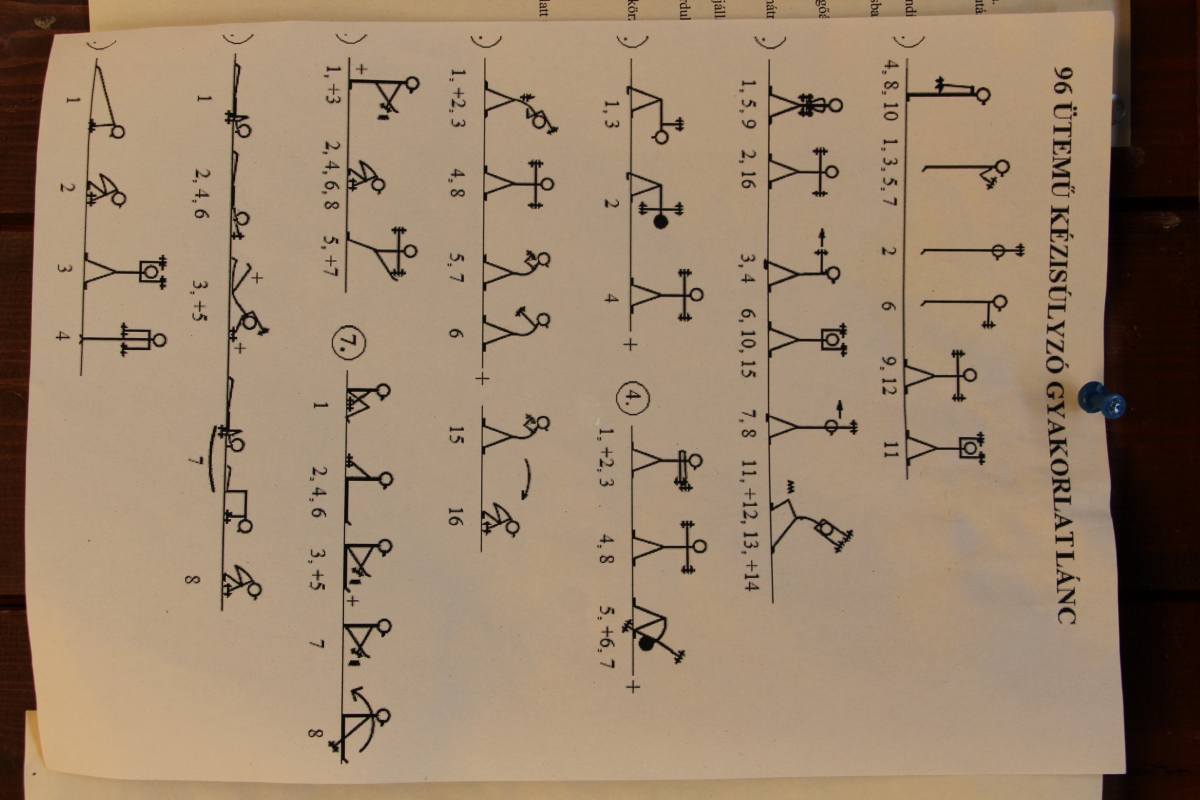 96 ÜTEMŰ KÉZISÚLYZÓ GYAKORLATLÁNC
4, 8, 10 1, 3, 5, 7 2 6 9, 12 11
1, 5, 9 2, 16 3, 4 6, 10, 15 7, 8 11, +12, 13, +14
1, 3 2 4 + 4. 1, +2, 3 4, 8 5, +6, 7 +
1, +2, 3 4, 8 5, 7 6 + 15 16
+ 1, +3 2, 4, 6, 8 5, +7 7. 1 2, 4, 6 3, +5 + 7 8
1 2, 4, 6 + 3, +5 + 7 8
1 2 3 4